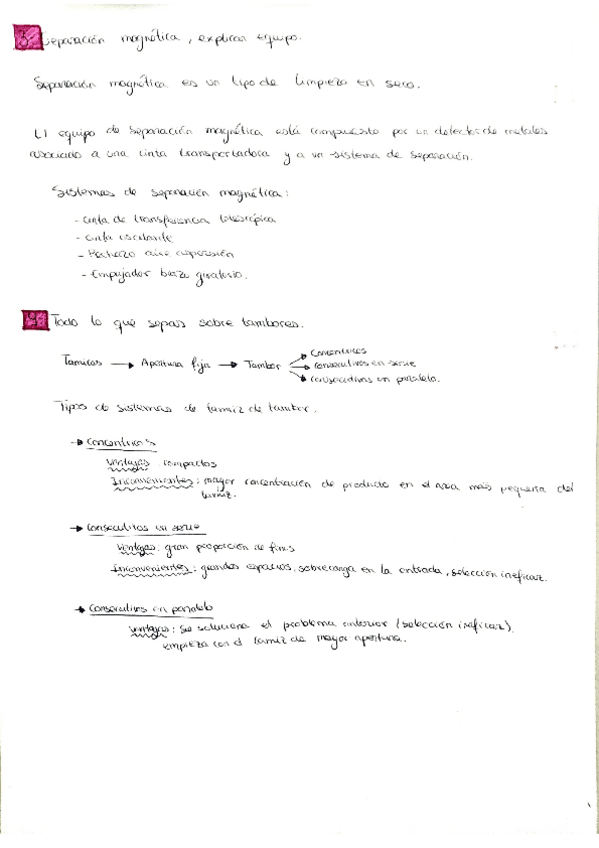 3. Separación magnética, explicar equipo.
Separación magnética es un tipo de limpieza en seco.
El equipo de separación magnética está compuesto por un detector de metales
asociado a una cinta transportadora y a un sistema de separación.
Sistemas de separación magnética:
- Cinta de transferencia telescópica
- Cinta oscilante
- Rechazo aire
- Empujador brazo giratorio.
Todo lo que sepas sobre tambores.
Tamices → Apertura fija → Tambor
Concentricos
consecutivos en serie
consecutivos en paralelo.
Tipos de sistemas de tamiz de tambor.
→ Concentricos
Ventajas: compactos
Inconvenientes: mayor concentración de producto en el area más pequeña del
tamiz.
→ Consecutivos en serie
Ventajas: gran proporción de finos
Inconvenientes: grandes espacios, sobrecarga en la entrada, selección ineficaz.
→ Consecutivos en paralelo
Ventajas: Se soluciona el problema anterior (selección ineficaz),
empieza con el tamiz de mayor apertura.